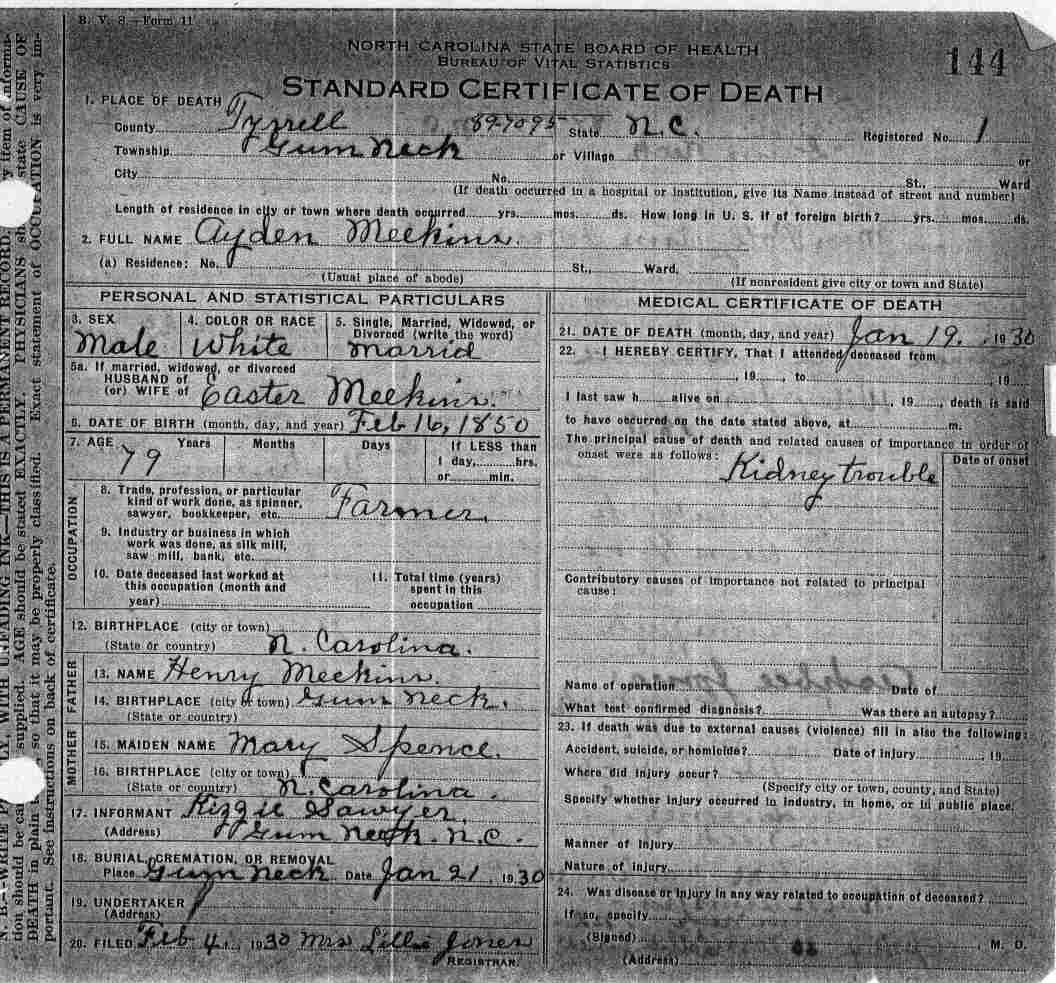 B. V. S.—Form 11
NORTH CAROLINA STATE BOARD OF HEALTH
BUREAU OF VITAL STATISTICS
144
STANDARD CERTIFICATE OF DEATH
1. PLACE OF DEATH
County Tyrrell 897095 State N.C. Registered No. 1
Township Gum Neck or Village or
City No. St., Ward
(If death occurred in a hospital or institution, give its Name instead of street and number)
Length of residence in city or town where death occurred yrs. mos. ds. How long in U. S. if of foreign birth? yrs. mos. ds.
2. FULL NAME Ayden Meekins
(a) Residence: No. St., Ward,
(Usual place of abode) (If nonresident give city or town and State)
PERSONAL AND STATISTICAL PARTICULARS
3. SEX 4. COLOR OR RACE 5. Single, Married, Widowed, or
Divorced (write the word)
Male White Marrid
5a. If married, widowed, or divorced
HUSBAND of
(or) WIFE of Easter Meekins.
6. DATE OF BIRTH (month, day, and year) Feb 16, 1850
7. AGE Years Months Days If LESS than
79 1 day, hrs.
or min.
OCCUPATION
8. Trade, profession, or particular
kind of work done, as spinner,
sawyer, bookkeeper, etc. Farmer.
9. Industry or business in which
work was done, as silk mill,
saw mill, bank, etc.
10. Date deceased last worked at
this occupation (month and
year)
11. Total time (years)
spent in this
occupation
12. BIRTHPLACE (city or town)
(State or country) N. Carolina.
FATHER
13. NAME Henry Meekins.
14. BIRTHPLACE (city or town) Gum Neck.
(State or country)
MOTHER
15. MAIDEN NAME Mary Spence.
16. BIRTHPLACE (city or town)
(State or country) N. Carolina.
17. INFORMANT Kizzie Sawyer.
(Address) Gum Neck. N.C.
18. BURIAL, CREMATION, OR REMOVAL
Place Gum Neck Date Jan 21, 1930
19. UNDERTAKER
(Address)
20. FILED Feb 4, 1930 Mrs Lillie Jones
REGISTRAR.
MEDICAL CERTIFICATE OF DEATH
21. DATE OF DEATH (month, day, and year) Jan 19, 1930
22. I HEREBY CERTIFY, That I attended deceased from
, 19 , to , 19
I last saw h alive on , 19 , death is said
to have occurred on the date stated above, at m.
The principal cause of death and related causes of importance in order of
onset were as follows: Date of onset
Kidney trouble
Contributory causes of importance not related to principal
cause:
Name of operation Date of
What test confirmed diagnosis? Was there an autopsy?
23. If death was due to external causes (violence) fill in also the following:
Accident, suicide, or homicide? Date of injury , 19
Where did injury occur?
(Specify city or town, county, and State)
Specify whether injury occurred in industry, in home, or in public place.
Manner of injury
Nature of injury
24. Was disease or injury in any way related to occupation of deceased?
If so, specify
(Signed) , M. D.
(Address)
N. B.—WRITE LY, WITH UNFADING INK—THIS IS A PERMANENT RECORD. y item of informa-
tion should be ca supplied. AGE should be stated EXACTLY. PHYSICIANS sh state CAUSE OF
DEATH in plain so that it may be properly classified. Exact statement of OCCUPATION is very im-
portant. See instructions on back of certificate.